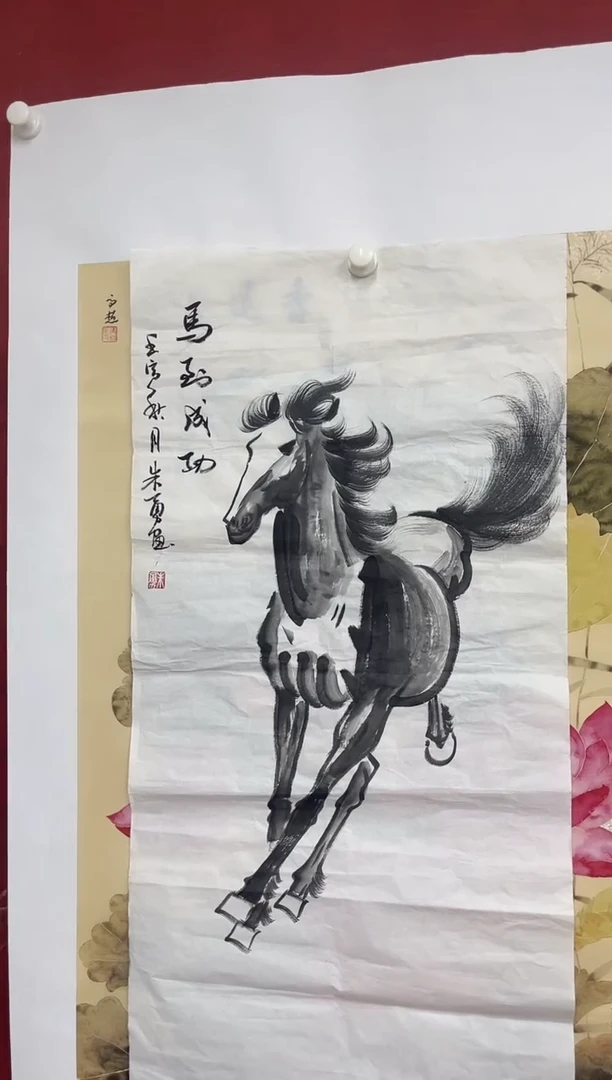 馬到成功
壬寅年秋月朱勇画